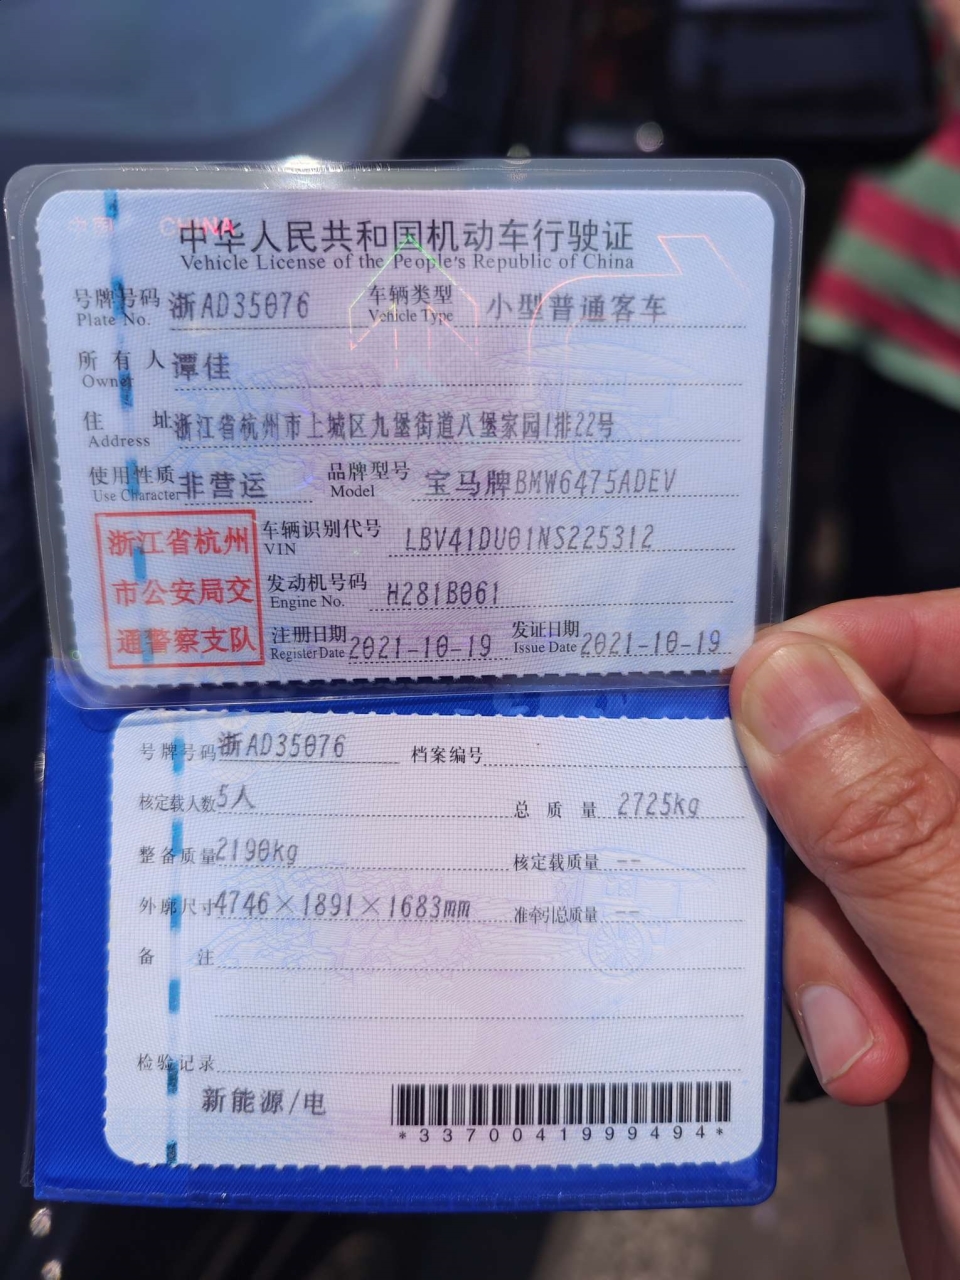 中国 CHINA
中华人民共和国机动车行驶证
Vehicle License of the People's Republic of China
号牌号码 浙AD35076 车辆类型 小型普通客车
Plate No. Vehicle Type
所有人 谭佳
Owner
住址 浙江省杭州市上城区九堡街道八堡家园1排22号
Address
使用性质 非营运 品牌型号 宝马牌BMW6475ADEV
Use Character Model
浙江省杭州
市公安局交
通警察支队
车辆识别代号 LBV41DU01NS225312
VIN
发动机号码 H281B061
Engine No.
注册日期 2021-10-19 发证日期 2021-10-19
Register Date Issue Date
号牌号码 浙AD35076 档案编号
核定载人数 5人 总质量 2725kg
整备质量 2190kg 核定载质量 --
外廓尺寸 4746×1891×1683mm 准牵引总质量 --
备注
检验记录
新能源/电
*3370041999494*